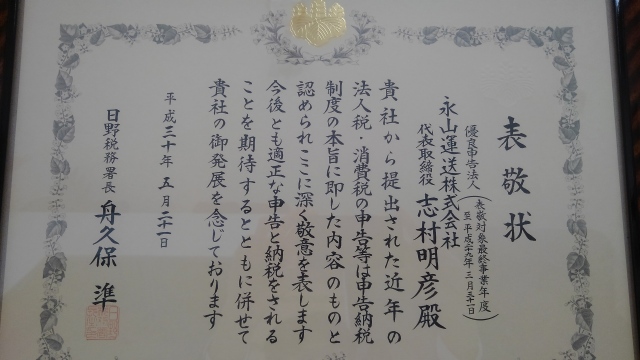 表敬状
優良申告法人
(表敬対象最終事業年度
至平成二十九年三月三十一日)
永山運送株式会社
代表取締役 志村明彦殿
貴社から提出された近年の
法人税・消費税の申告等は申告納税
制度の本旨に即した内容のものと
認められ、ここに深く敬意を表します
今後とも適正な申告と納税をされる
ことを期待するとともに併せて
貴社の御発展を念じております
平成三十年五月二十一日
日野税務署長 舟久保 準